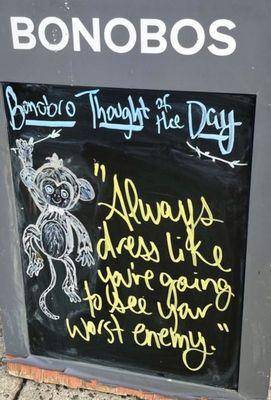 BONOBOS
Bonobro Thought of the Day
"Always
dress like
you're going
to see your
worst enemy."